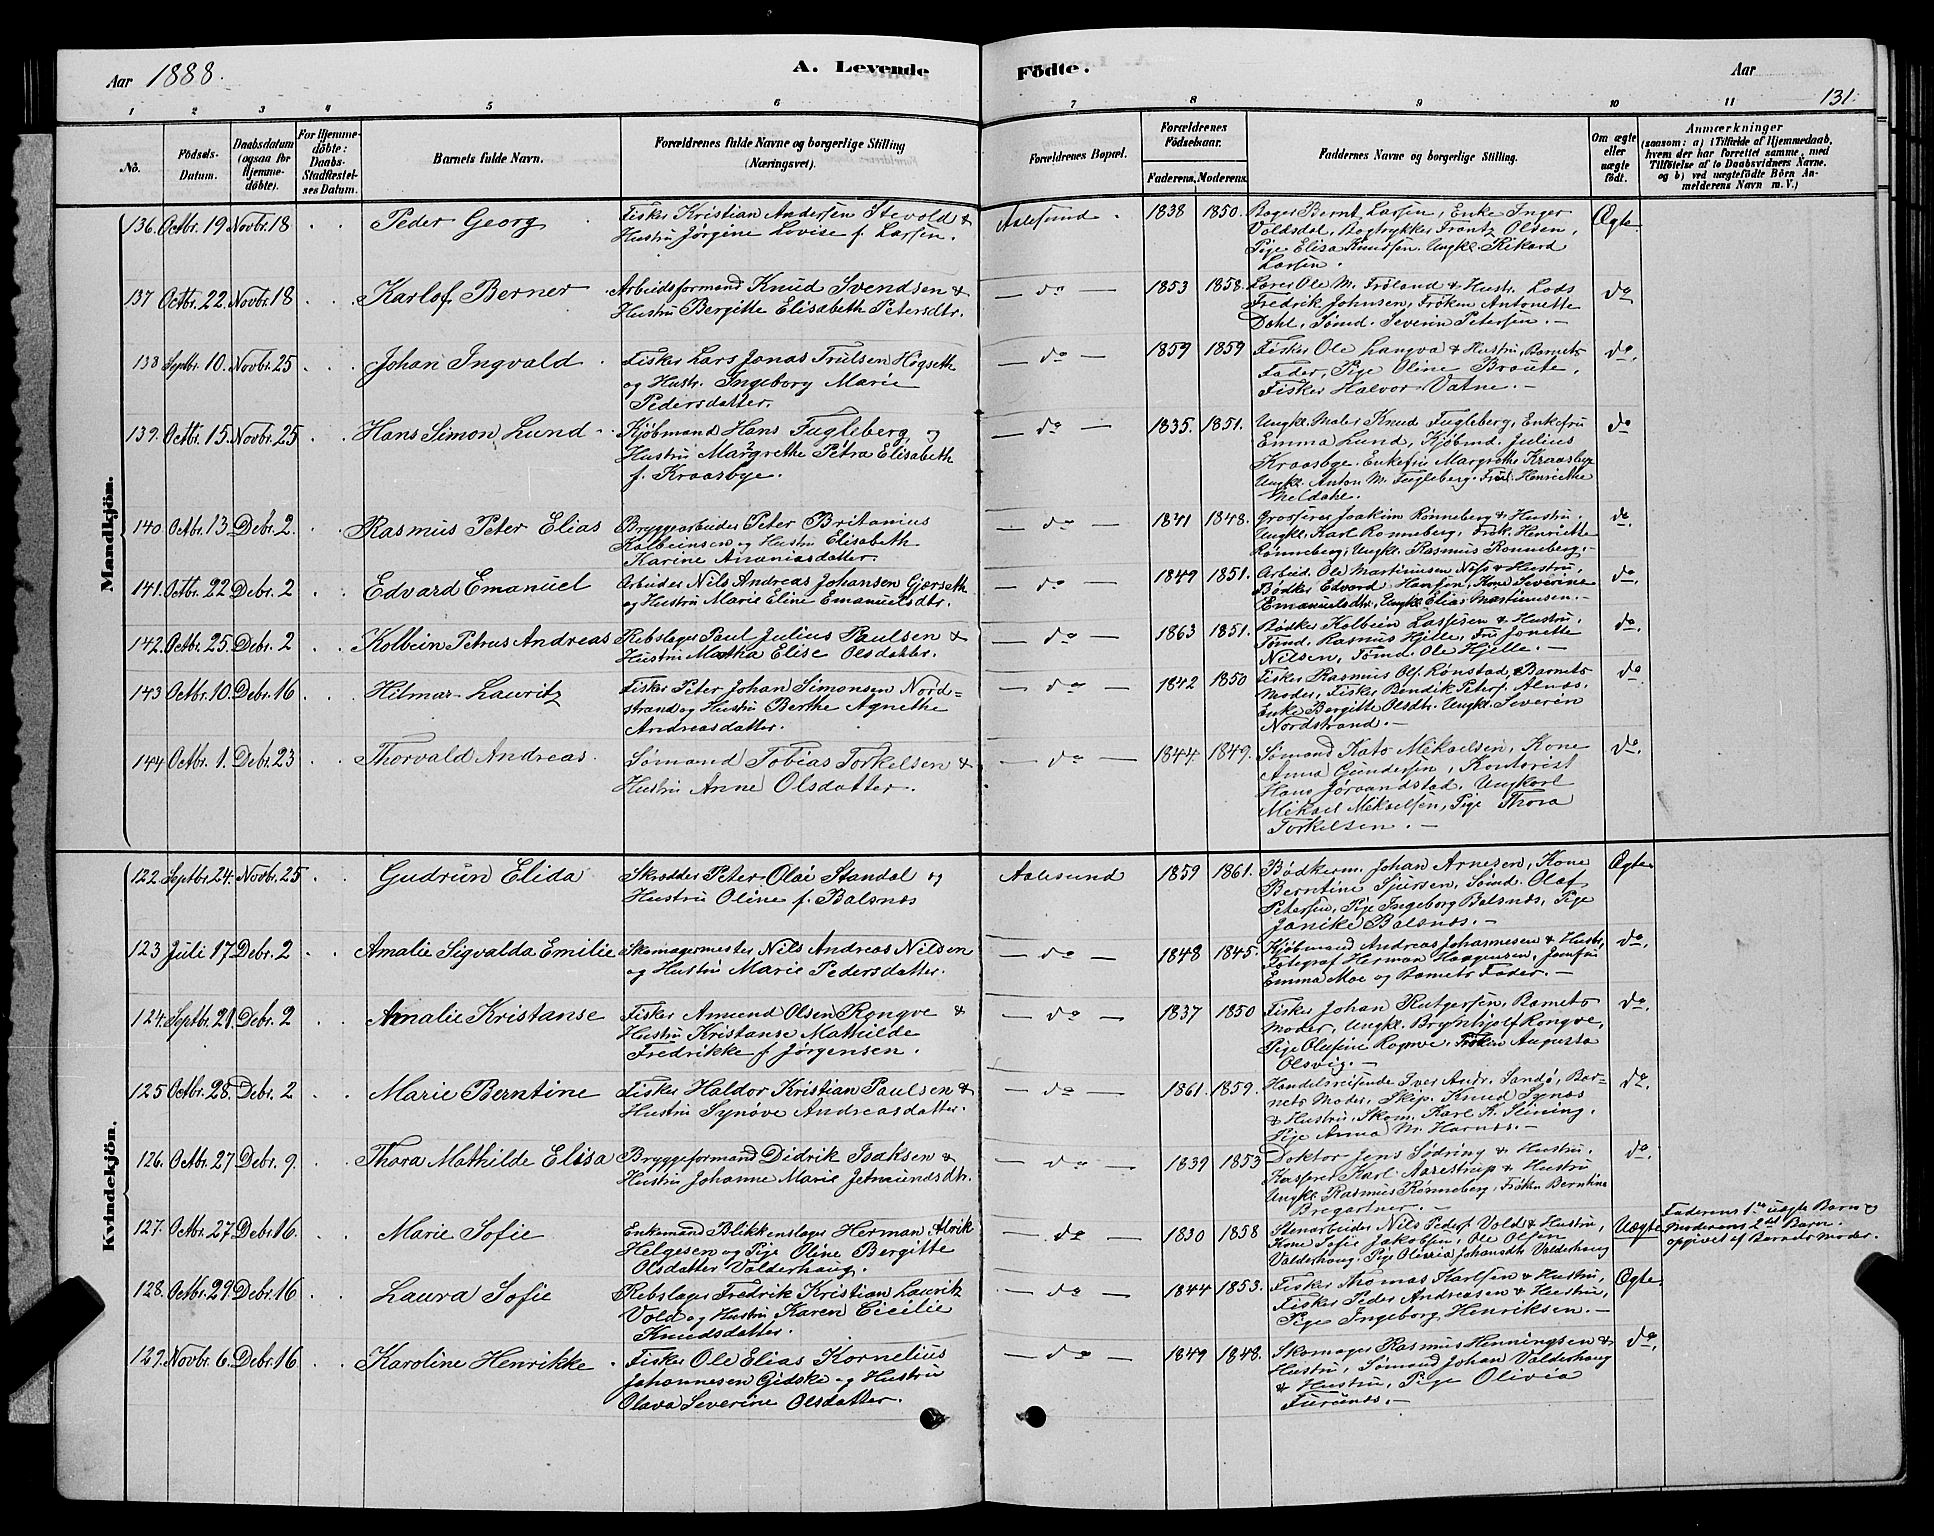 Aar 1888.
A. Levende
Födte.
Aar
131.
1 2 3 4 5 6 7 8 9 10 11
No.
Födsels-
Datum.
Daabsdatum
(ogsaa for
Hjemme-
döbte).
For Hjemme-
döbte:
Daabs-
Stadfæstel-
ses Datum.
Barnets fulde Navn.
Forældrenes fulde Navne og borgerlige Stilling
(Næringsvei).
Forældrenes Bopæl.
Forældrenes
Födselsaar.
Faderens. Moderens.
Faddernes Navne og borgerlige Stilling.
Om ægte
eller
uægte
födt.
Anmærkninger
(saasom: a) i Tilfælde af Hjemmedaab,
hvem der har forrettet samme, med
Tilföielse af to Daabsvidners Navne.
og b) ved uægtefödte Börn An-
melderens Navn m. V.)
Mandkjön.
136. Octbr. 19 Novbr. 18 Peder Georg
Fisker Kristian Andersen Stevold &
Hustru Jørgine Lovise f. Larsen.
Aalesund. 1838 1850.
Bager Bernt Larsen, Enke Inger
Voldsdal, Bogtrykker Frantz Olsen,
Pige Elisa Knudsen. Ungkl. Rikard
Larsen.
Ægte
137 Octbr. 22 Novbr. 18 Karlof Berner
Arbeidsformand Knud Svendsen &
Hustru Bergitte Elisabeth Petersdtr.
— do — 1853 1858.
Lærer Ole M. Fröland & Hustr. Lods
Fredrik Johnsen, Fröken Antonette
Dahl, Sømd. Severin Petersen. —
do
138 Septbr. 10. Novbr. 25 Johan Ingvald
Fisker Lars Jonas Trulsen Högseth
og Hustr. Ingeborg Marie
Pedersdatter.
— do — 1859 1859
Fisker Ole Langva & Hustru, Barnets
Fader, Pige Oline Braute,
Fisker Halvor Vatne. —
do.
139. Octbr. 15. Novbr. 25 Hans Simon Lund
Kjöbmand Hans Fugleberg og
Hustru Margrethe Petra Elisabeth
f. Kraasbye.
— do — 1835. 1851.
Ungkl. Maler Knud Fugleberg, Enkefru
Emma Lund, Kjöbmd. Julius
Kraasbye. Enkefru Margrethe Kraasbye
Ungkl. Anton M. Fugleberg. Frøk. Henriette
Meldahl.
do
140 Octbr. 13 Debr. 2. Rasmus Peter Elias
Bryggearbeider Peter Britanius
Kolbeinsen og Hustru Elisabeth
Karine Ananiasdatter.
— do — 1841 1848.
Grosserer Joakim Rønneberg & Hustru.
Ungkl. Karl Rønneberg, Frøk. Henriette
Rønneberg, Ungkl. Rasmus Rønneberg. —
do.
141. Octbr. 22 Debr. 2 Edvard Emanuel
Arbeider Nils Andreas Johansen Gjærseth
og Hustru Marie Eline Emanuelsdtr.
— do — 1849 1851.
Arbeid. Ole Martinusen Næss & Hustru,
Bødker Edvard Hansen, Kone Severine
Emanuelsdtr., Ungkl. Elias Martinusen. —
do.
142. Octbr. 25. Debr. 2 Kolbein Petrus Andreas
Rebslager Paul Julius Paulsen &
Hustru Martha Elise Olsdatter.
— do — 1863 1851.
Bødker Kolbein Lassesen & Hustru,
Tømd. Rasmus Hjelle, Frk. Jonette
Nilsen, Tømd. Ole Hjelle. —
do.
143 Octbr. 10. Debr. 16 Hilmar Lauritz
Fisker Peter Johan Simonsen Nord=
strand og Hustru Berthe Agnethe
Andreasdatter.
— do — 1842 1850
Fisker Rasmus Ols. Rønstad, Barnets
Moder, Fisker Bendik Peters. Alnæs,
Enke Bergitte Olsdtr. Ungkl. Severin
Nordstrand. —
do
144 Octbr. 1. Debr. 23 Thorvald Andreas.
Sømand Tobias Torkelsen &
Hustru Anne Olsdatter.
— do — 1844. 1849.
Sømand Kato Mikaelsen, Kone
Anna Gundersen, Kontorist
Hans Jøraandstad, Ungkarl
Mikael Mikaelsen, Pige Thora
Torkelsen. —
do.
Kvindekjön.
122. Septbr. 24. Novbr. 25 Gudrun Elida
Skrædder Peter Olai Standal og
Hustru Oline f. Balsnæs
Aalesund 1859 1861.
Bødkerm. Johan Arnesen, Kone
Berntine Sjursen, Sømd. Olaf
Petersen, Pige Ingeborg Balsnæs, Pige
Janike Balsnæs. —
Ægte
123 Juli 17 Debr. 2 Amalie Sigvalda Emilie
Skomagermester Nils Andreas Nilsen
og Hustru Marie Pedersdatter.
— do — 1848 1845.
Kjøbmand Andreas Johannesen & Hustr.
Fotograf Herman Haagensen, Jomfru
Emma Moe og Barnets Fader. —
do.
124. Septbr. 21. Debr. 2 Amalie Kristanse
Fisker Amund Olsen Rongve &
Hustru Kristanse Mathilde
Fredrikke f. Jørgensen.
— do — 1837 1850
Fisker Johan Rutgersen, Barnets
Moder, Ungkl. Brynhjolf Rongve,
Pige Olufine Rogne, Frøken Augusta
Olsvig. —
do.
125 Octbr. 28. Debr. 2 Marie Berntine
Fisker Haldor Kristian Paulsen &
Hustru Synöve Andreasdatter.
— do — 1861. 1859.
Handelsreisende Iver Andr. Sandø, Bar=
nets Moder, Skip. Knud Synæs
& Hustru, Skom. Karl K. Slining,
Pige Anna M. Harnes. —
do.
126. Octbr. 27 Debr. 9. Thora Mathilde Elisa
Bryggeformand Didrik Isaksen &
Hustru Johanne Marie Jetmundsdtr.
— do — 1839 1853
Doktor Jens Södring & Hustru.
Kasserer Karl Aarestrup & Hustru,
Ungkl. Rasmus Rønneberg, Frøken Berntine
Bregartner. —
do.
127. Octbr. 27 Debr. 16. Marie Sofie
Enkemand Blikkenslager Herman Alvik
Helgesen og Pige Oline Bergitte
Olsdatter Valderhaug.
— do — 1830 1858
Stenarbeider Nils Peders. Vold & Hustru,
Kone Sofie Jakobsen, Ole Olsen
Valderhaug. Pige Olivia Johansdtr. Valderhaug
Uægte.
Faderens 1ste uægte Barn og
Moderens 2det Barn.
opgivet af Barnets Moder.
128. Octbr. 29 Debr. 16 Laura Sofie
Rebslager Fredrik Kristian Laurits
Vold og Hustru Karen Cicilie
Knudsdatter.
— do — 1844 1853.
Fisker Thomas Karlsen & Hustru,
Fisker Peder Andreasen & Hustru,
Pige Ingeborg Henriksen. —
Ægte
129. Novbr. 6. Debr. 16 Karoline Henrikke
Fisker Ole Elias Kornelius
Johannesen Gidske og Hustru
Olava Severine Olsdatter.
— do — 1849 1848.
Skomager Rasmus Henningsen &
Hustru, Sømand Johan Valderhaug
& Hustru, Pige Olivia
Furunæs. —
do.